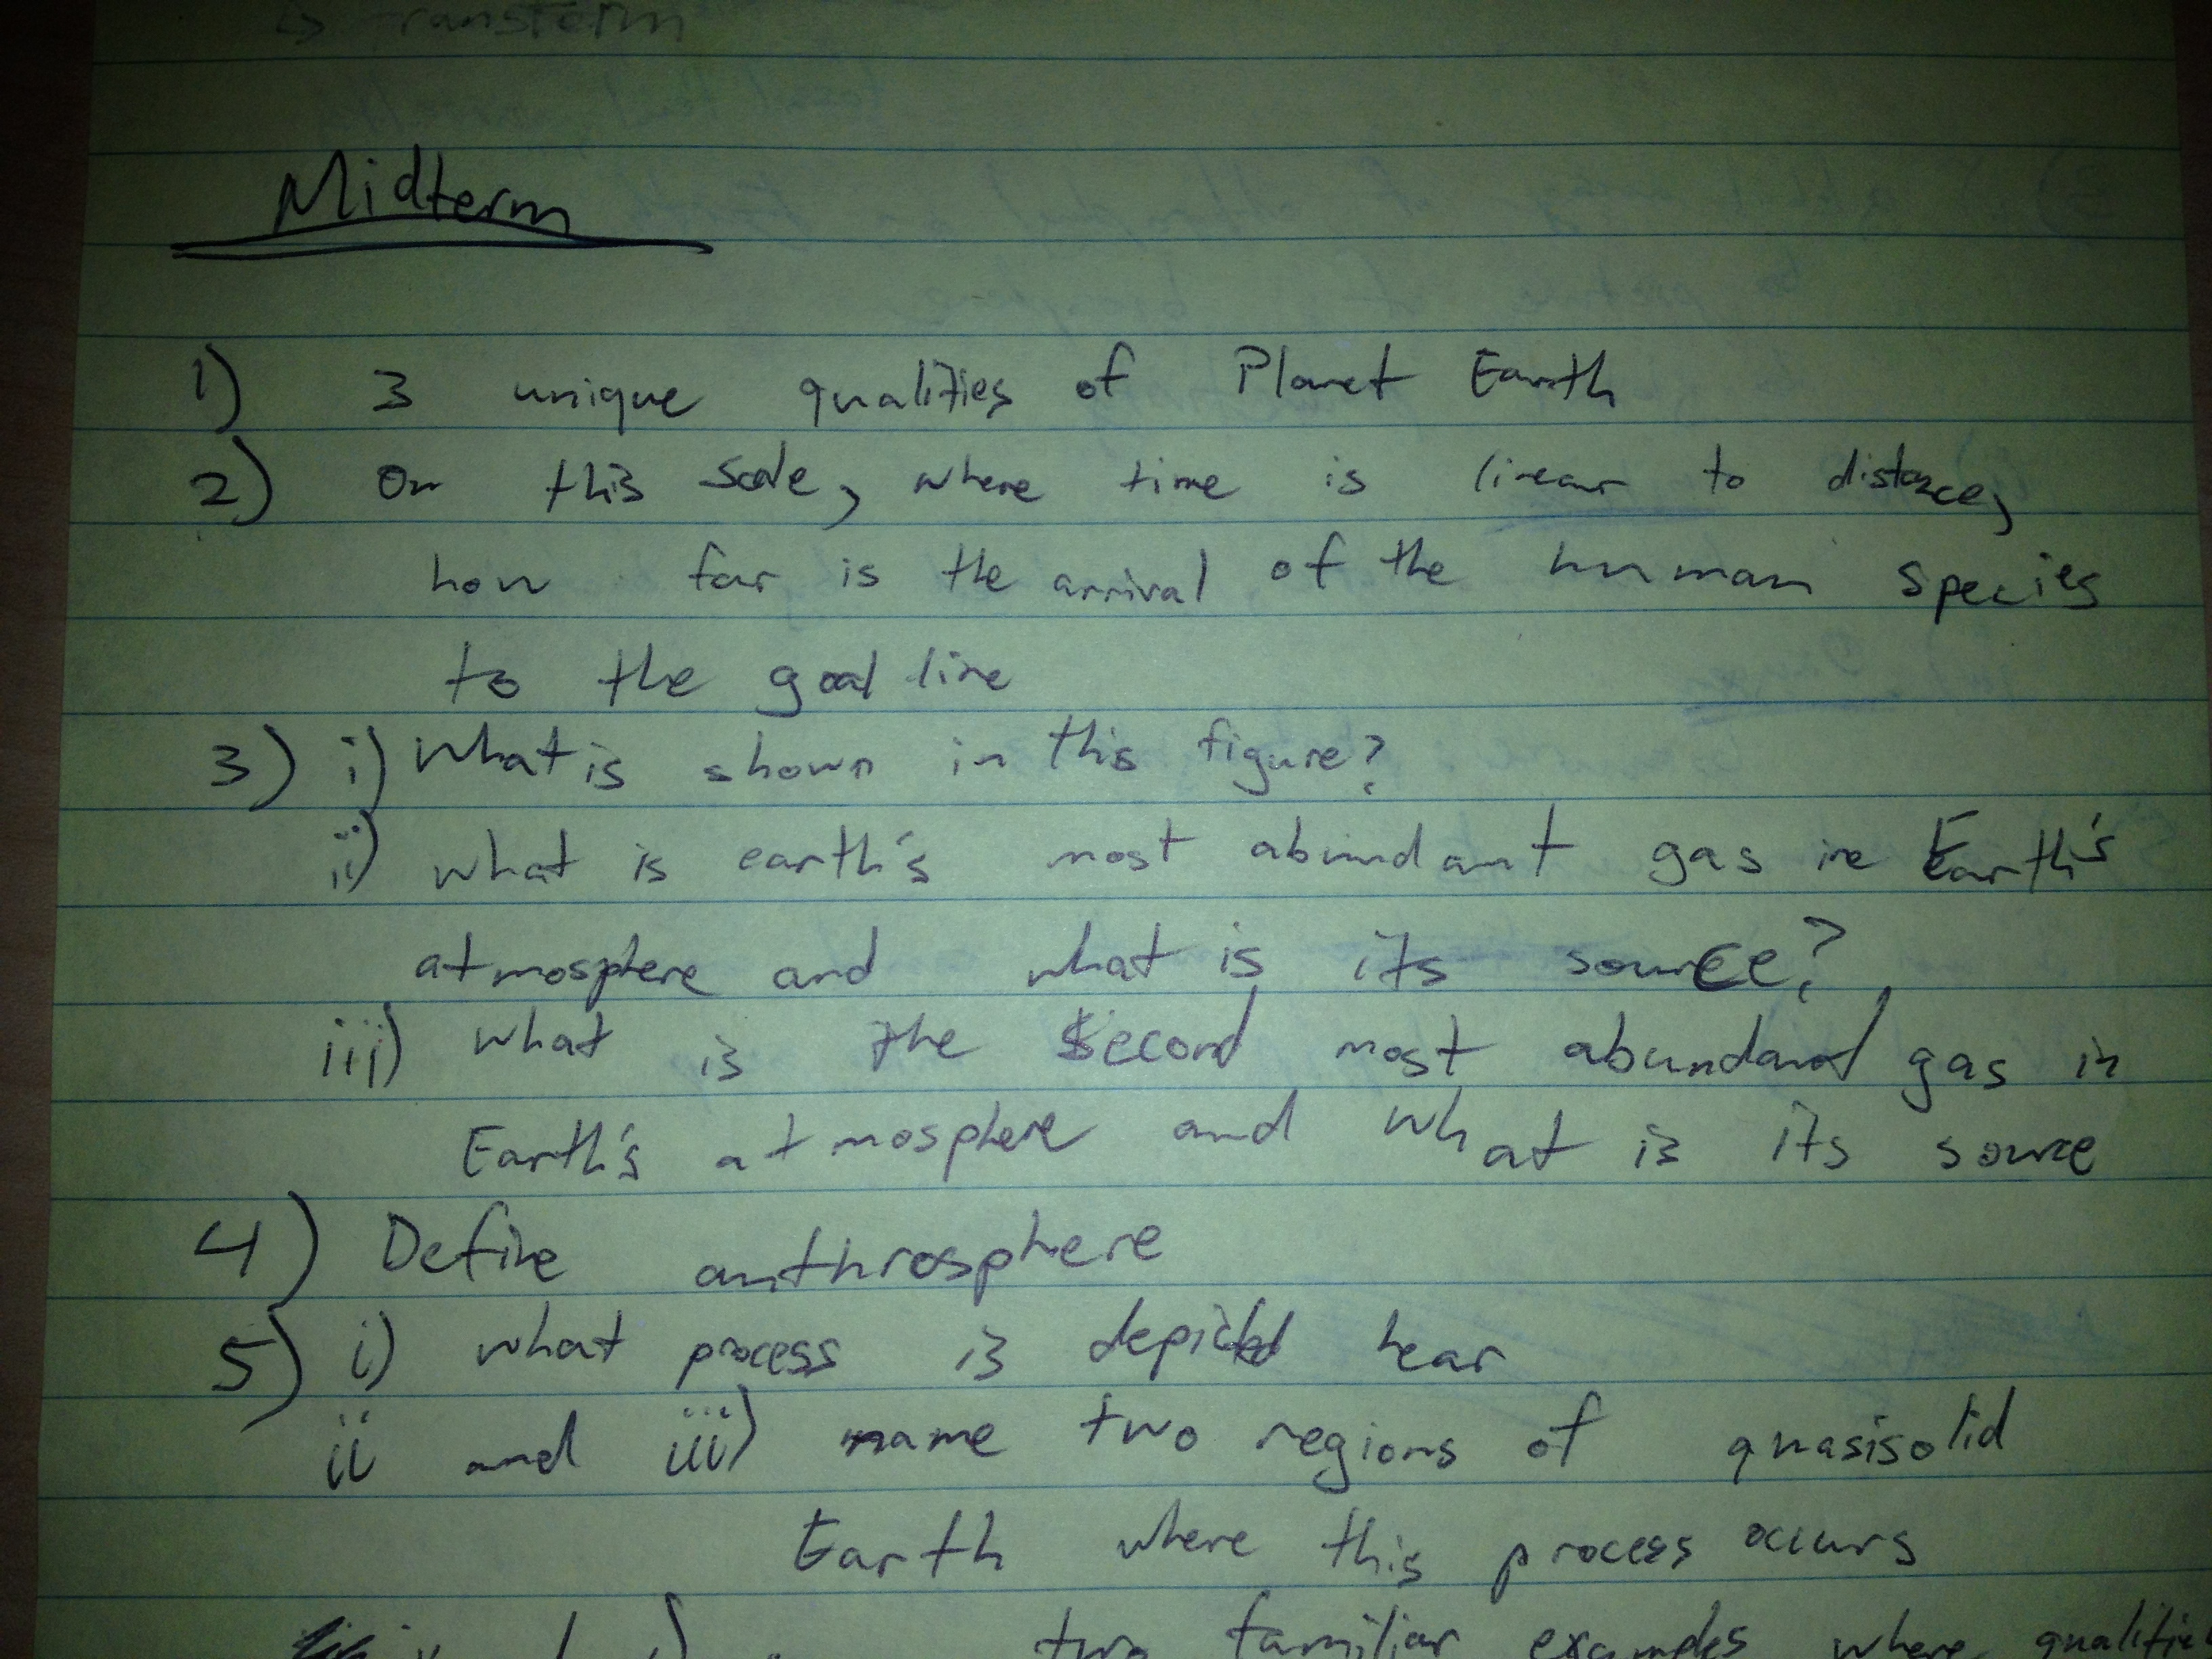 ↳ Transform
Midterm
1) 3 unique qualities of Planet Earth
2) On this scale, where time is linear to distance,
how far is the arrival of the human species
to the goal line
3) i) What is shown in this figure?
ii) what is earth's most abundant gas in Earth's
atmosphere and what is its source?
iii) what is the second most abundant gas in
Earth's atmosphere and what is its source
4) Define anthrosphere
5) i) what process is depicted hear
ii and iii) name two regions of quasisolid
Earth where this process occurs
two familiar examples where